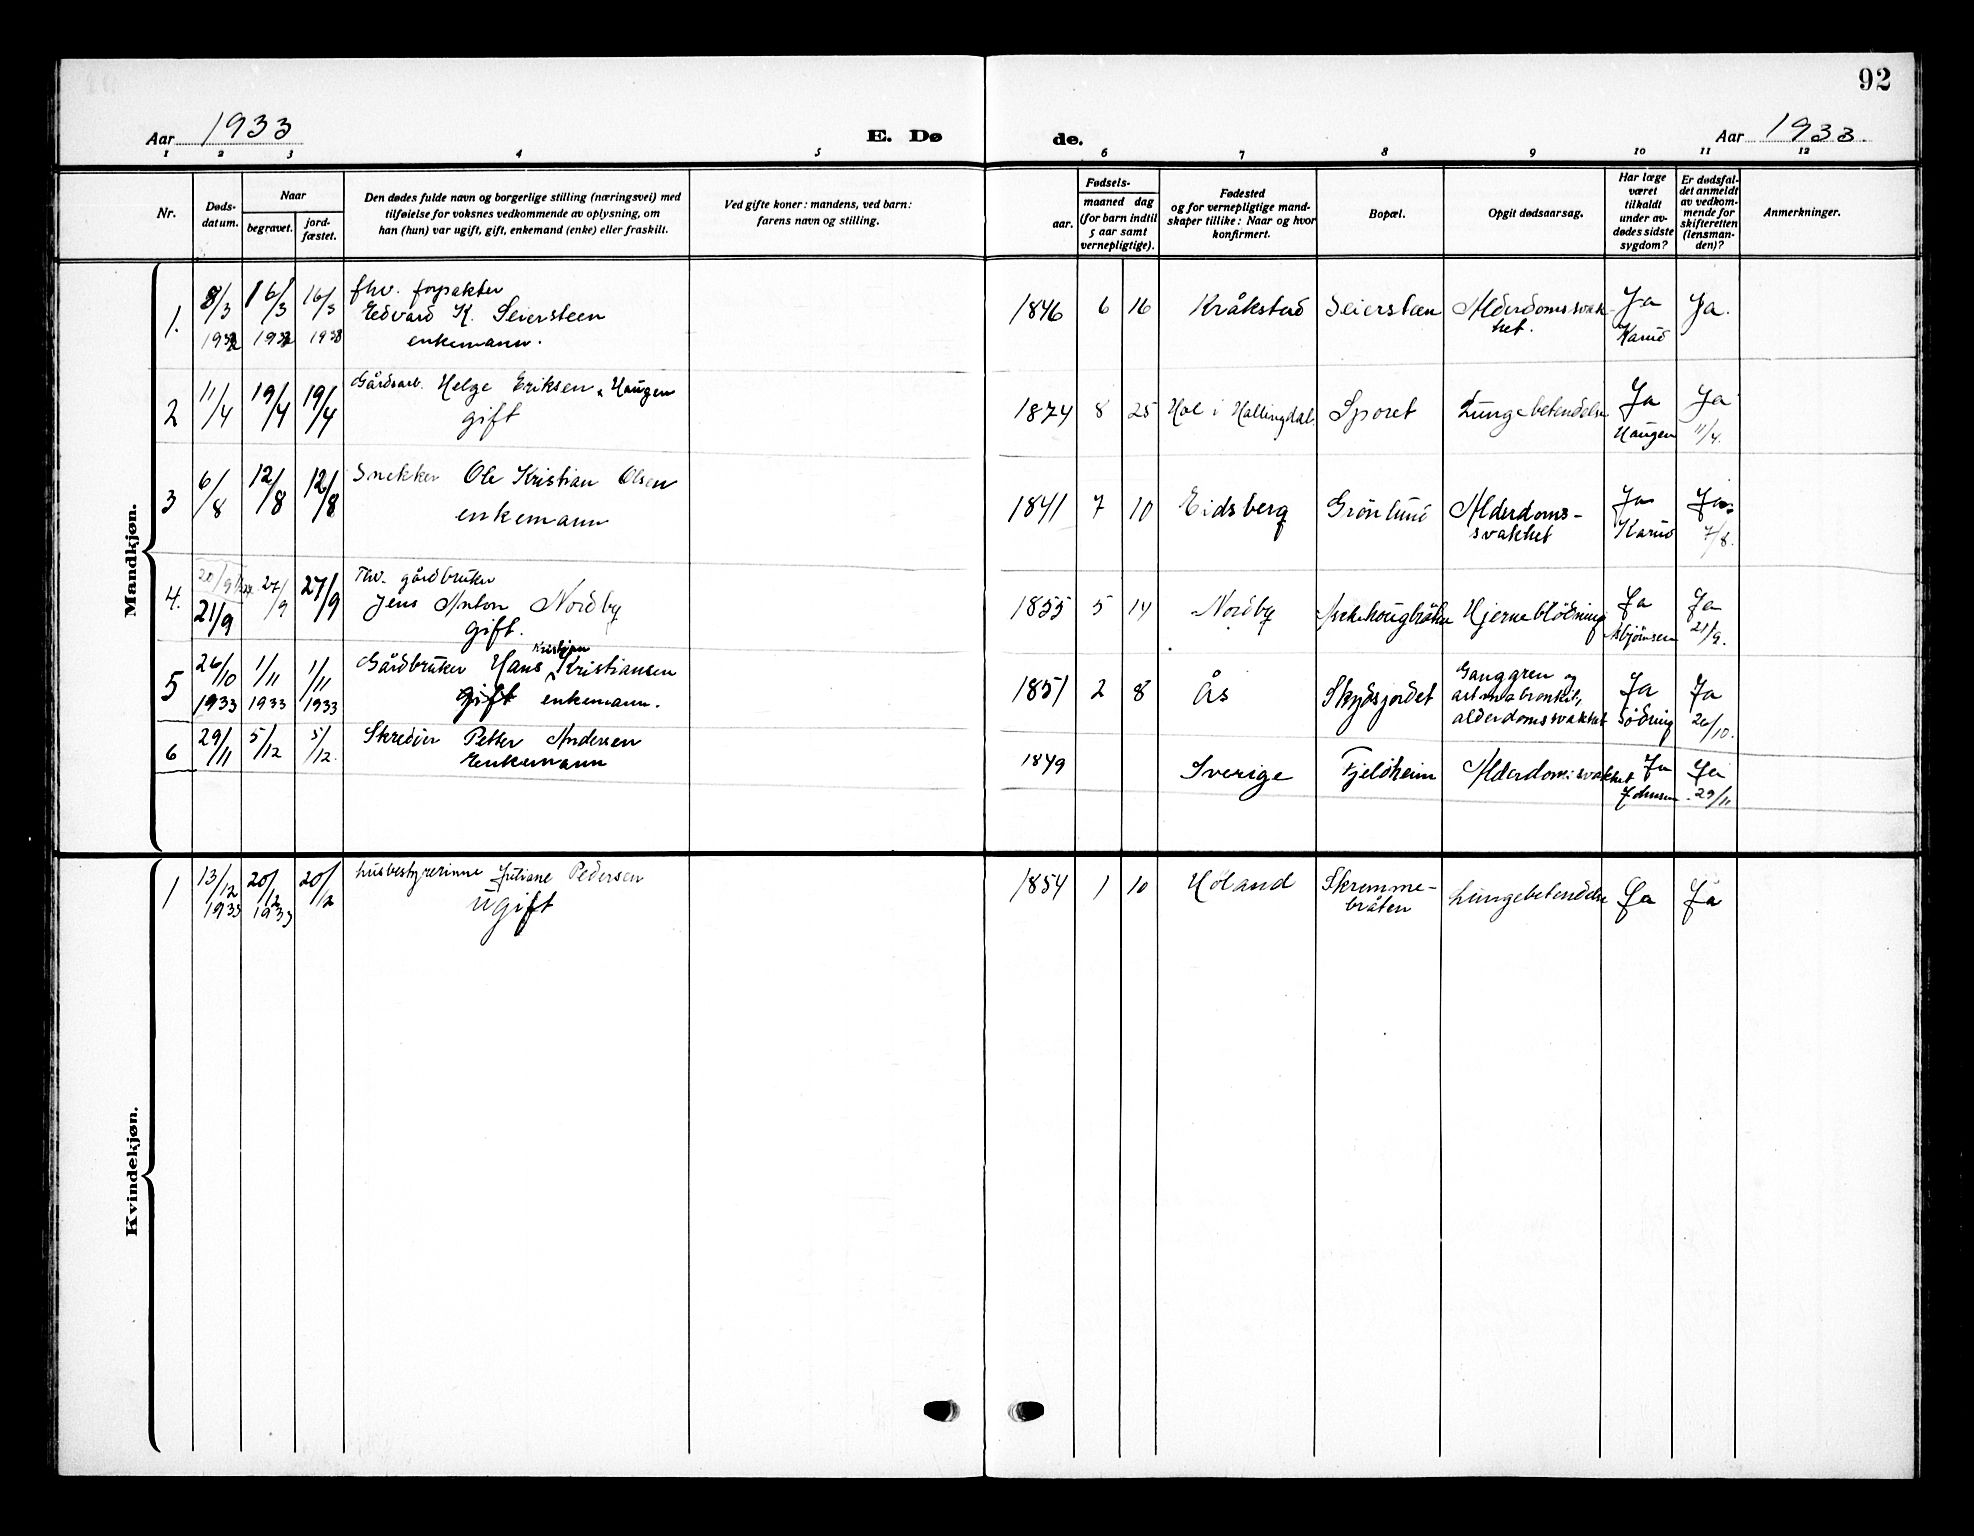 92
Aar 1933
E. Dø
de.
Aar 1933.
1 2 3 4 5 6 7 8 9 10 11 12
Nr.
Døds-
datum.
Naar
begravet.
jord-
fæstet.
Den dødes fulde navn og borgerlige stilling (næringsvei) med
tilføielse for voksnes vedkommende av oplysning, om
han (hun) var ugift, gift, enkemand (enke) eller fraskilt.
Ved gifte koner: mandens, ved barn:
farens navn og stilling.
Fødsels-
aar.
maaned dag
(for barn indtil
5 aar samt
vernepligtige).
Fødested
og for vernepligtige mand-
skaper tillike: Naar og hvor
konfirmert.
Bopæl.
Opgit dødsaarsag.
Har læge
været
tilkaldt
under av-
dødes sidste
sygdom?
Er dødsfal-
det anmeldt
av vedkom-
mende for
skifteretten
(lensman-
den)?
Anmerkninger.
Mandkjøn.
1. 8/3 16/3 16/3 fhv. forpakter
Edvard K. Seiersteen
enkemann.
1846 6 16 Kråkstad Seiersteen Alderdomssvak-
het.
Ja
Karud
Ja.
2 11/4 19/4 19/4 Gårdsarb. Helge Eriksen Haugen
gift
1874 8 25 Hol i Hallingdal. Sporet Lungebetendelse
Ja
Haugen
Ja
11/4.
3 6/8 12/8 12/8 Snekker Ole Kristian Olsen
enkemann
1841 7 10 Eidsberg Grønlund Alderdoms-
svakhet
Ja
Karud
Ja
7/8.
4. 21/9 27/9 27/9 Fhv. gårdbruker
Jens Anton Nordby
gift.
1855 5 14 Nordby Hjerneblødning
Ja
Asbjørnsen
Ja
21/9.
5 26/10 1933 1/11 1933 1/11 1933 Gårdbruker Hans Kristian Kristiansen
gift enkemann.
1851 2 8 Ås Skydsjordet Ganggren og
alderdomssvakhet
Ja
Sødring
Ja
26/10.
6 29/11 5/12 5/12. Skredder Petter Andersen
Enkemann
1849 Sverige Fjeldheim Alderdomssvakhet
Ja
Johnsen
Ja
29/11
Kvindekjøn.
1 13/12 1933 20/12 1933 20/12 husbestyrerinne Juliane Pedersen
ugift
1854 1 10 Høland Skremme-
bråten
Lungebetendelse Ja Ja